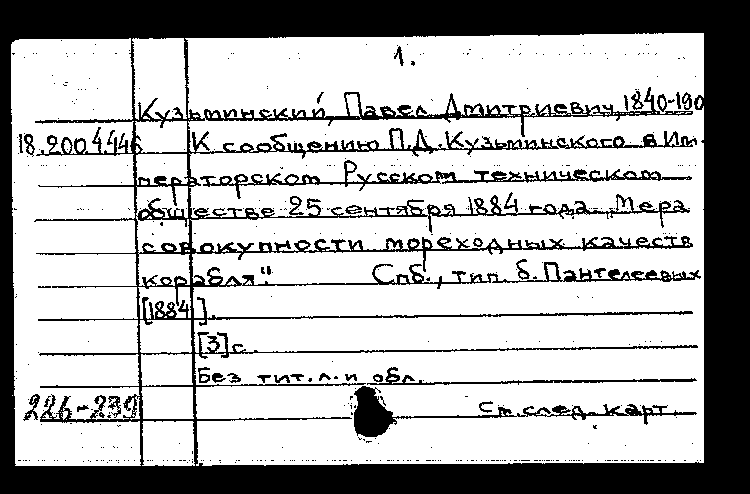 1.
Кузьминский, Павел Дмитриевич, 1840-190
18.200.4.446 К сообщению П.Д. Кузьминского в Им-
ператорском Русском техническом
обществе 25 сентября 1884 года. „Мера
совокупности мореходных качеств
корабля". Спб., тип. б. Пантелеевых
[1884].
[3]с.
Без тит. л. и обл.
226-239 См. след. карт.